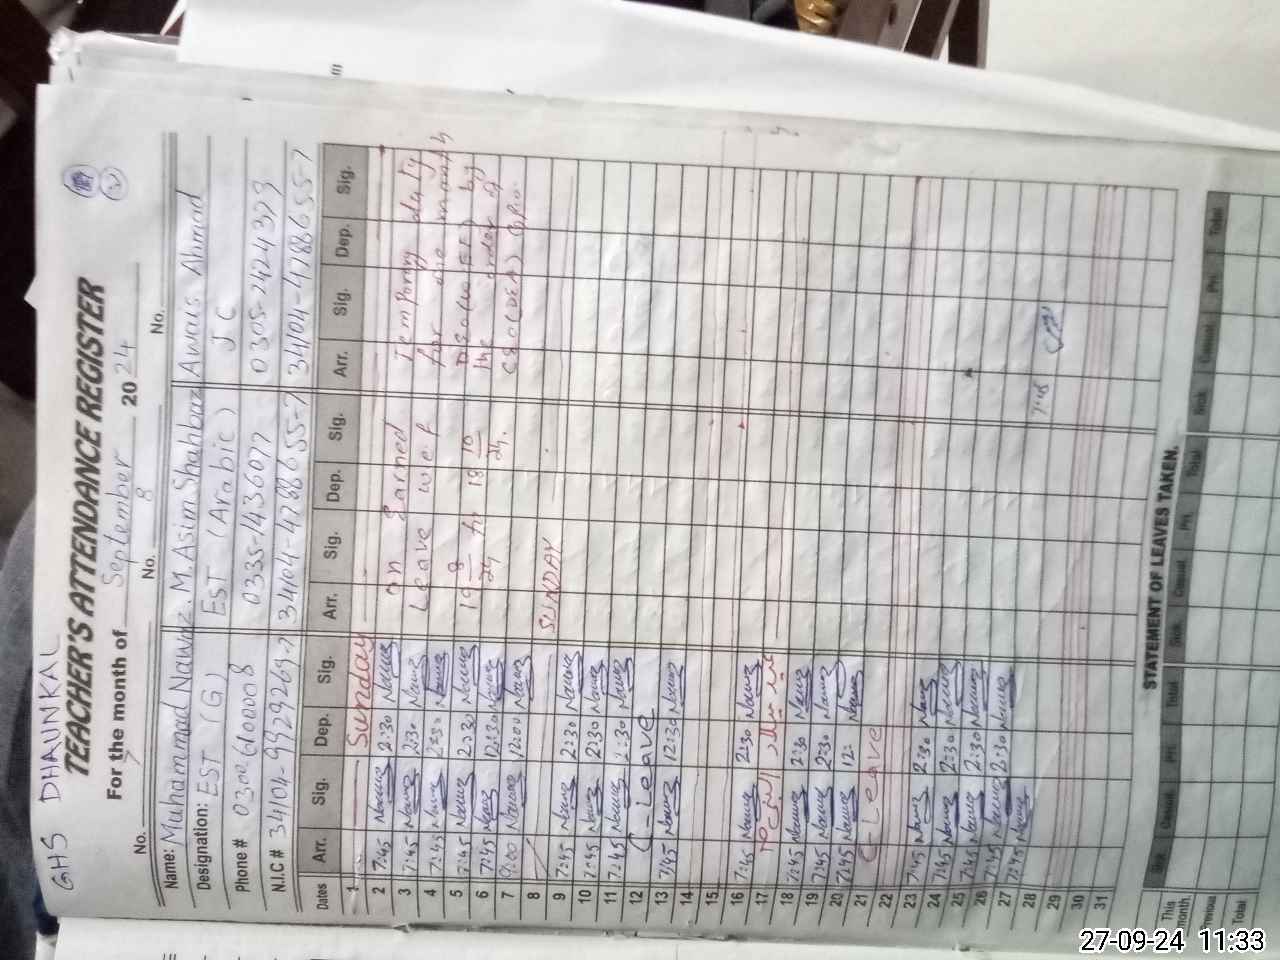 GHS DHAUNKAL
TEACHER'S ATTENDANCE REGISTER
For the month of September 2024
No. No. 8 No.
Name: Muhammad Nawaz M. Asim Shahbaz Awais Ahmad
Designation: EST (G) EST (Arabic) JC
Phone # 0300-6100008
N.I.C #
Dates Arr. Sig. Dep. Sig. Arr. Sig. Dep. Sig. Arr. Sig. Dep. Sig.
1 Sunday
2 7:45 Nawaz 2:30 Nawaz
3 7:45 Nawaz 2:30 Nawaz
4 7:45 Nawaz 2:30 Nawaz
5 7:45 Nawaz 2:30 Nawaz
6 7:45 Nawaz 12:30 Nawaz
7 Nawaz 12:00 Nawaz
8 SUNDAY
9 7:45 Nawaz 2:30 Nawaz
10 7:45 Nawaz 2:30 Nawaz
11 7:45 Nawaz 2:30 Nawaz
12 C-Leave
13 7:45 Nawaz 12:30 Nawaz
14
15
16 7:45 Nawaz 2:30 Nawaz
17
18 7:45 Nawaz 2:30 Nawaz
19 7:45 Nawaz 2:30 Nawaz
20 7:45 Nawaz 12: Nawaz
21 C-Leave
22
23 7:45 Nawaz 2:30 Nawaz
24 7:45 Nawaz 2:30 Nawaz
25 7:45 Nawaz 2:30 Nawaz
26 7:45 Nawaz 2:30 Nawaz
27 7:45 Nawaz
28
29
30
31
On Earned
Leave wef
19 8/24 to 18 10/24.
Temporary duty
for one month
by
the order of
CEO (DEA)
STATEMENT OF LEAVES TAKEN.
Sick Casual Pri. Total Sick Casual Pri. Total Sick Casual Pri. Total
This month.
Previous
Total
27-09-24 11:33